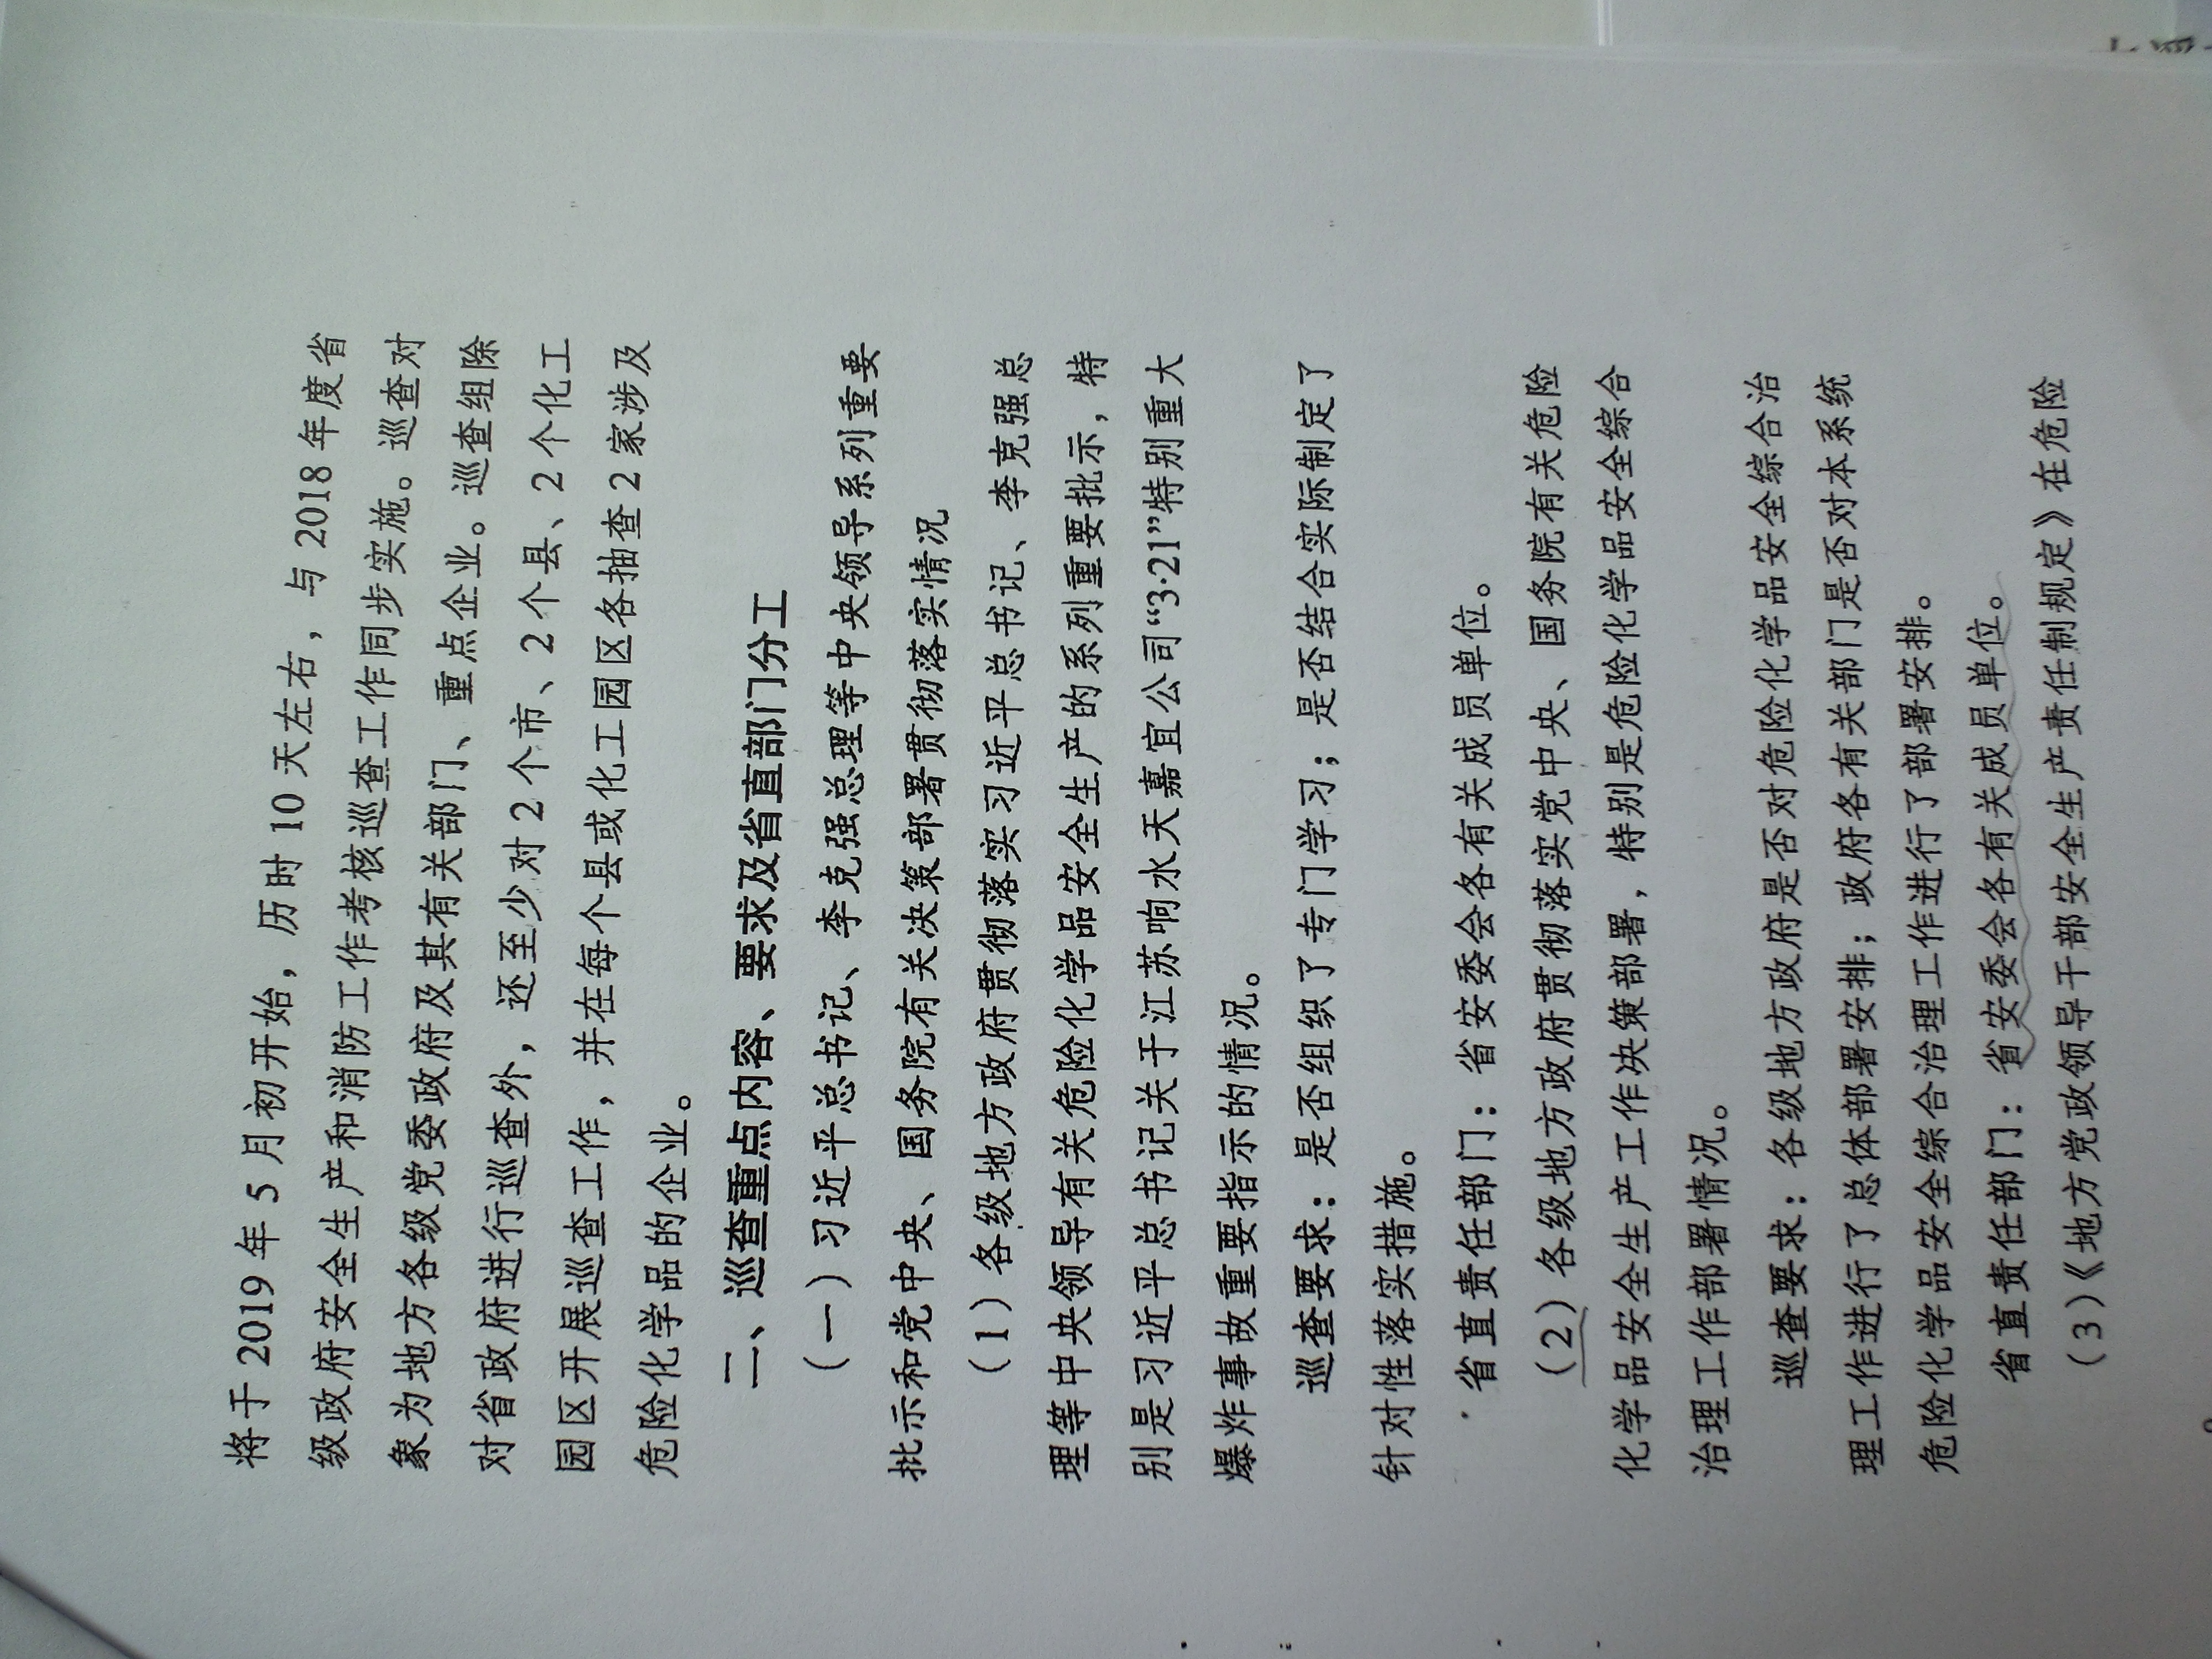 将于 2019 年 5 月初开始，历时 10 天左右，与 2018 年度省
级政府安全生产和消防工作考核巡查工作同步实施。巡查对
象为地方各级党委政府及其有关部门、重点企业。巡查组除
对省政府进行巡查外，还至少对 2 个市、2 个县、2 个化工
园区开展巡查工作，并在每个县或化工园区各抽查 2 家涉及
危险化学品的企业。
二、巡查重点内容、要求及省直部门分工
（一）习近平总书记、李克强总理等中央领导系列重要
批示和党中央、国务院有关决策部署贯彻落实情况
（1）各级地方政府贯彻落实习近平总书记、李克强总
理等中央领导有关危险化学品安全生产的系列重要批示，特
别是习近平总书记关于江苏响水天嘉宜公司“3·21”特别重大
爆炸事故重要指示的情况。
巡查要求：是否组织了专门学习；是否结合实际制定了
针对性落实措施。
省直责任部门：省安委会各有关成员单位。
（2）各级地方政府贯彻落实党中央、国务院有关危险
化学品安全生产工作决策部署，特别是危险化学品安全综合
治理工作部署情况。
巡查要求：各级地方政府是否对危险化学品安全综合治
理工作进行了总体部署安排；政府各有关部门是否对本系统
危险化学品安全综合治理工作进行了部署安排。
省直责任部门：省安委会各有关成员单位。
（3）《地方党政领导干部安全生产责任制规定》在危险